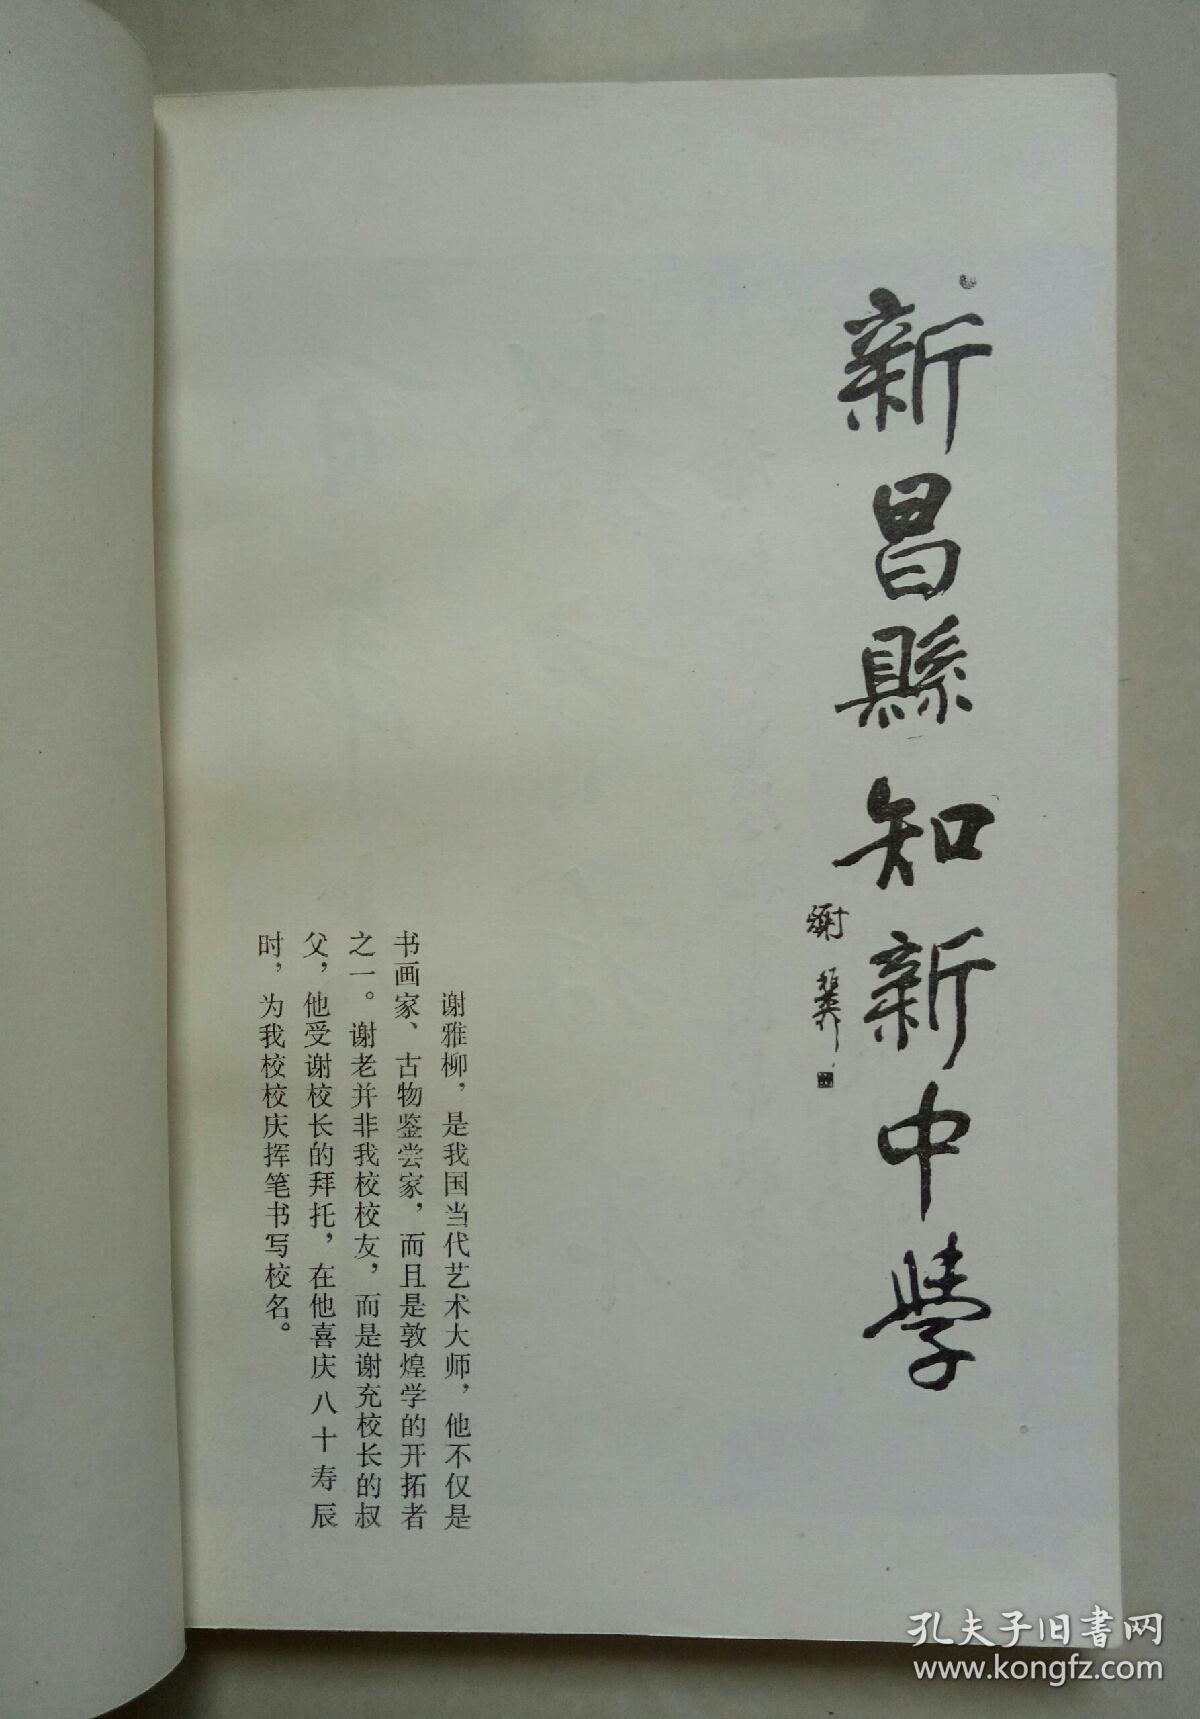 新昌縣知新中學
謝稚柳
谢雅柳，是我国当代艺术大师，他不仅是
书画家、古物鉴尝家，而且是敦煌学的开拓者
之一。谢老并非我校校友，而是谢充校长的叔
父，他受谢校长的拜托，在他喜庆八十寿辰
时，为我校校庆挥笔书写校名。
孔夫子旧書网
www.kongfz.com